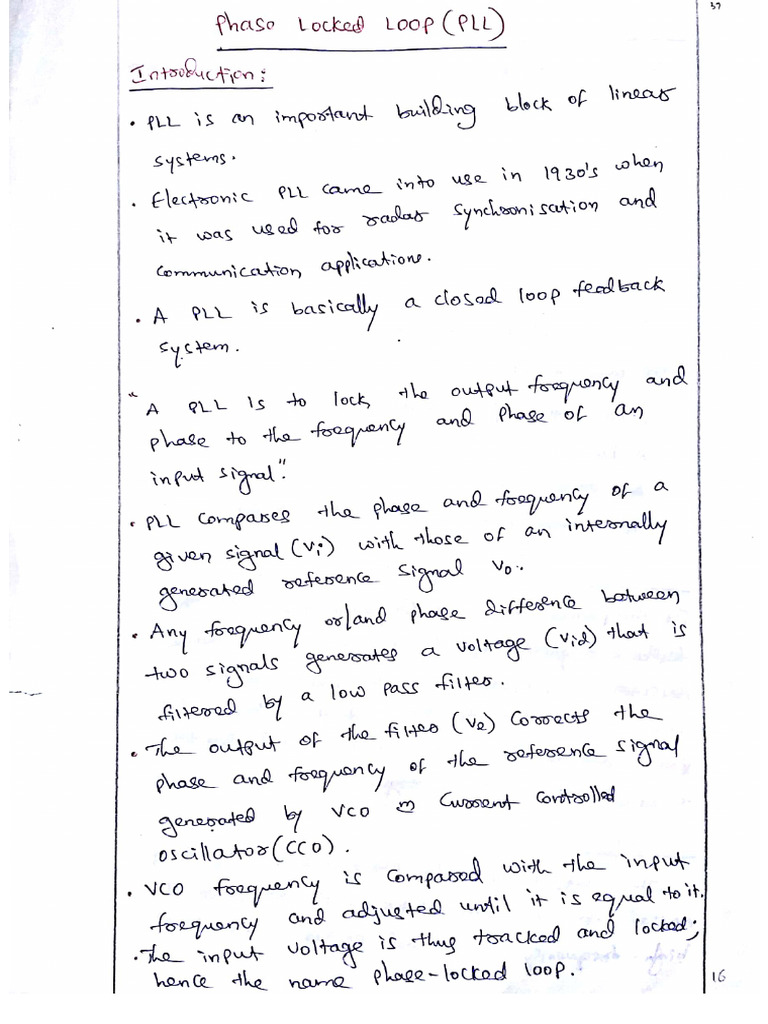 37
Phase Locked Loop (PLL)
Introduction:
• PLL is an important building block of linear
systems.
• Electronic PLL came into use in 1930's when
it was used for radar synchronisation and
communication applications.
• A PLL is basically a closed loop feedback
system.
"A PLL is to lock the output frequency and
phase to the frequency and phase of an
input signal".
• PLL compares the phase and frequency of a
given signal (Vi) with those of an internally
generated reference signal Vo.
• Any frequency or/and phase difference between
two signals generates a voltage (Vid) that is
filtered by a low pass filter.
• The output of the filter (Ve) corrects the
phase and frequency of the reference signal
generated by VCO Current controlled
oscillator (CCO).
• VCO frequency is compared with the input
frequency and adjusted until it is equal to it.
• The input voltage is thus tracked and locked;
hence the name phase-locked loop.
16